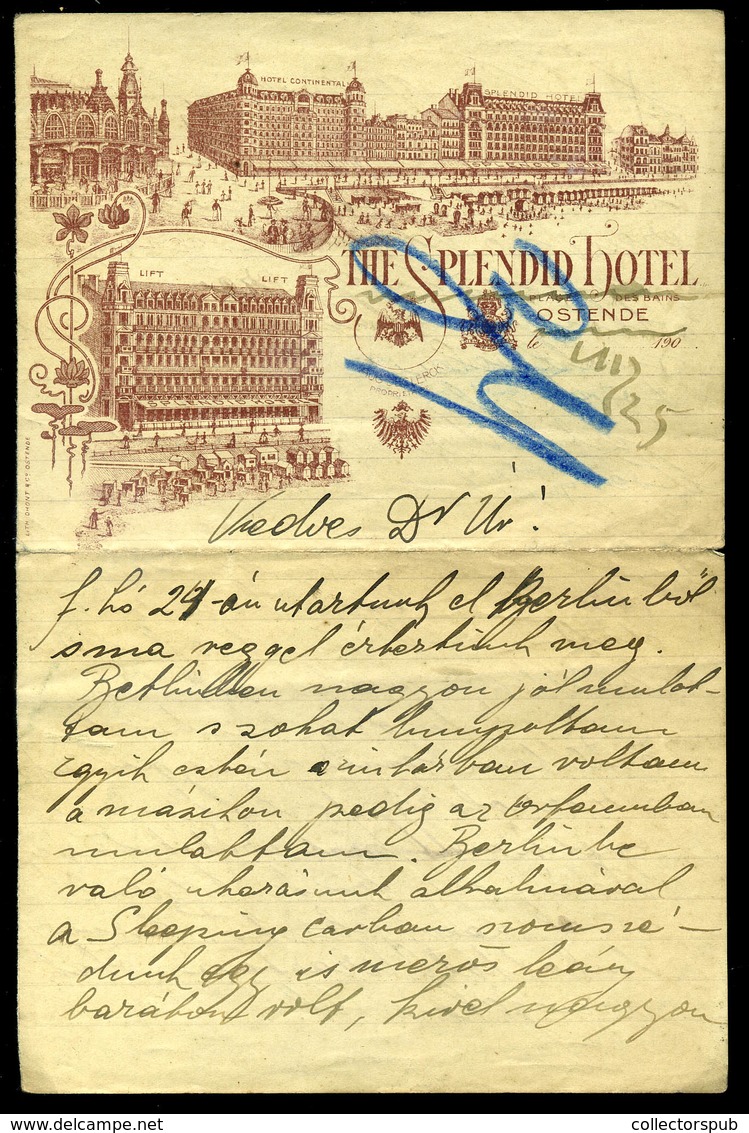 HOTEL CONTINENTAL
SPLENDID HOTEL
LIFT LIFT
THE SPLENDID HOTEL
PLACE DES BAINS
OSTENDE
le 190
PROPRIET
LITH. DHONT & Cº OSTENDE
Kedves Dr Úr!
f. hó 24-én utaztunk el Berlinből
s ma reggel érkeztünk meg.
Berlinben nagyon jól mulat-
tam s sokat
egyik estén színházban voltam
a másikon pedig az orfeumban
mulattam. Berlinbe
való utazásunk alkalmával
a Sleeping carban szomszé-
dunk egy ismerős leány
barátom volt, kivel nagyon
collectorspub.com